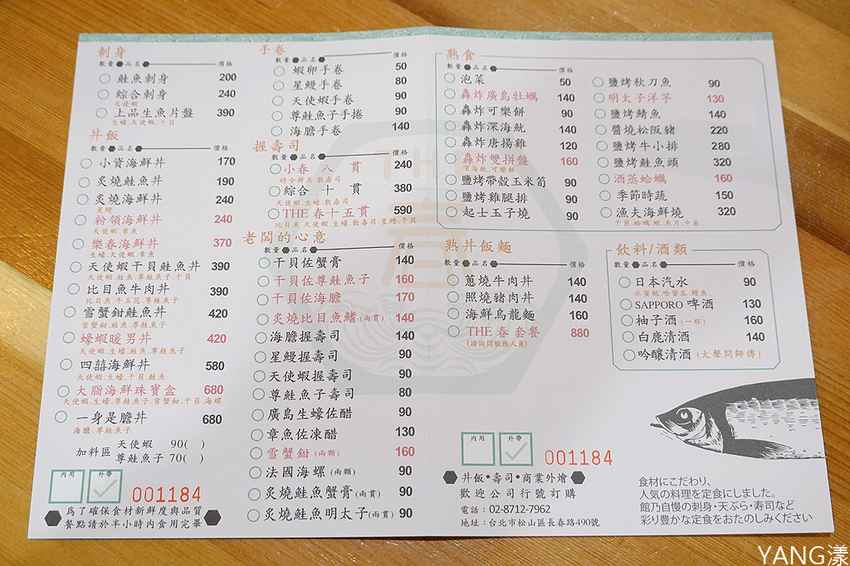 刺身
數量 品名 價格
鮭魚刺身 200
綜合刺身 240
天使蝦
上品生魚片盤 390
生蠔.天使蝦.干貝
丼飯
數量 品名 價格
小資海鮮丼 170
炙燒鮭魚丼 190
炙燒海鮮丼 240
星鰻
粉領海鮮丼 240
天使蝦.章魚
樂春海鮮丼 370
生蠔.天使蝦.章魚
天使蝦干貝鮭魚丼 390
天使蝦.鮭魚.尊鮭魚子.干貝
比目魚牛肉丼 390
比目魚.牛五花.尊鮭魚子
雪蟹鉗鮭魚丼 420
雪蟹鉗.鮭魚.尊鮭魚子
蠔蝦暖男丼 420
天使蝦.生蠔.鮭魚.尊鮭魚子
四囍海鮮丼 580
天使蝦.生蠔.干貝.鮭魚
大脂海鮮珠寶盒 680
天使蝦.生蠔.尊鮭魚子.雪蟹鉗.干貝.海螺
一身是膽丼 680
海膽.尊鮭魚子
加料區 天使蝦 90( )
尊鮭魚子 70( )
內用 外帶
001184
為了確保食材新鮮度與品質
餐點請於半小時內食用完畢
手卷
數量 品名 價格
蝦卵手卷 50
星鰻手卷 80
天使蝦手卷 90
尊鮭魚子手捲 90
海膽手卷 140
握壽司
數量 品名 價格
小春 八 貫 240
時令鮮魚.散壽司
綜合 十 貫 380
天使蝦.生蠔.散壽司
THE 春十五貫 590
比目魚.天使蝦.生蠔.散壽司.星鰻.干貝
老闆的心意
數量 品名 價格
干貝佐蟹膏 140
干貝佐尊鮭魚子 160
干貝佐海膽 170
炙燒比目魚鰭(兩貫) 160
海膽握壽司 140
星鰻握壽司 90
天使蝦握壽司 90
尊鮭魚子壽司 80
廣島生蠔佐醋 90
章魚佐凍醋 130
雪蟹鉗(兩顆) 160
法國海螺(兩顆) 90
炙燒鮭魚蟹膏(兩貫) 90
炙燒鮭魚明太子(兩貫) 90
熟食
數量 品名 價格
泡菜 50
轟炸廣島牡蠣 140
轟炸可樂餅 90
轟炸深海魷 90
轟炸唐揚雞 120
轟炸雙拼盤 160
深海魷.可樂餅
鹽烤帶殼玉米筍 90
鹽烤雞腿排 90
起士玉子燒 90
鹽烤秋刀魚 90
明太子洋芋 130
鹽烤鯖魚 140
醬燒松阪豬 220
鹽烤牛小排 280
鹽烤鮭魚頭 320
酒蒸蛤蠣 160
季節時蔬 150
漁夫海鮮燒 320
干貝.蛤蠣.蝦.魚片.中卷
熟丼飯麵
數量 品名 價格
蔥燒牛肉丼 140
照燒豬肉丼 140
海鮮烏龍麵 160
THE 春套餐 880
(請詢問服務人員)
飲料/酒類
數量 品名 價格
日本汽水 90
水蜜桃.哈密瓜.鮭魚
SAPPORO 啤酒 130
柚子酒(一杯) 160
白鹿清酒 140
吟釀清酒 (大聲問師傅)
內用 外帶
001184
丼飯•壽司•商業外燴
歡迎公司行號訂購
電話：02-8712-7962
地址：台北市松山區長春路490號
食材にこだわり、
人気の料理を定食にしました。
館乃自慢の刺身・天ぷら・寿司など
彩り豊かな定食をおたのしみください
THE
春
YANG漾